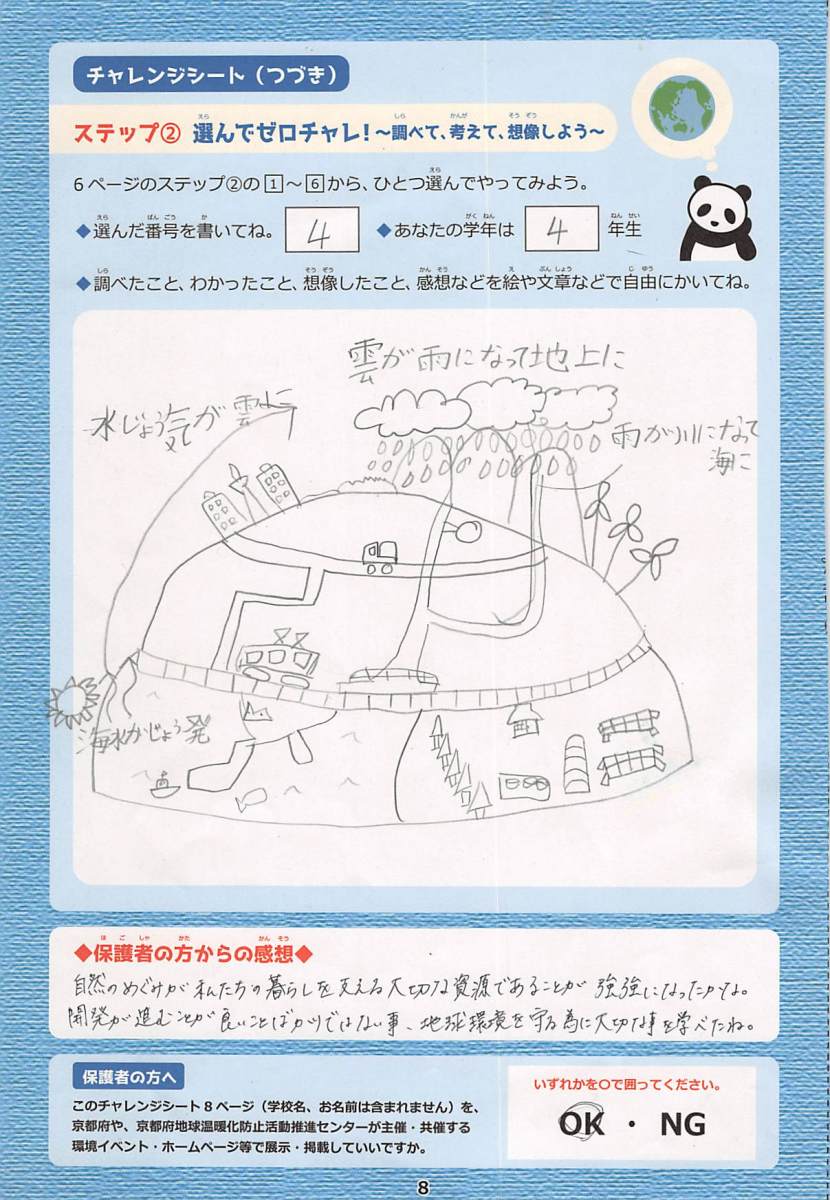 チャレンジシート（つづき）
ステップ② 選んでゼロチャレ！～調べて、考えて、想像しよう～
6ページのステップ②の1～6から、ひとつ選んでやってみよう。
◆選んだ番号を書いてね。 4 ◆あなたの学年は 4 年生
◆調べたこと、わかったこと、想像したこと、感想などを絵や文章などで自由にかいてね。
雲が雨になって地上に
水じょう気が雲に
雨が川になって
海に
海水がじょう発
◆保護者の方からの感想◆
自然のめぐみが私たちの暮らしを支える大切な資源であることが 強強になったかな。
開発が進むことが良いことばかりではない事、地球環境を守る為に大切な事を学べたね。
保護者の方へ
このチャレンジシート8ページ（学校名、お名前は含まれません）を、
京都府や、京都府地球温暖化防止活動推進センターが主催・共催する
環境イベント・ホームページ等で展示・掲載していいですか。
いずれかを〇で囲ってください。
OK ・ NG
8